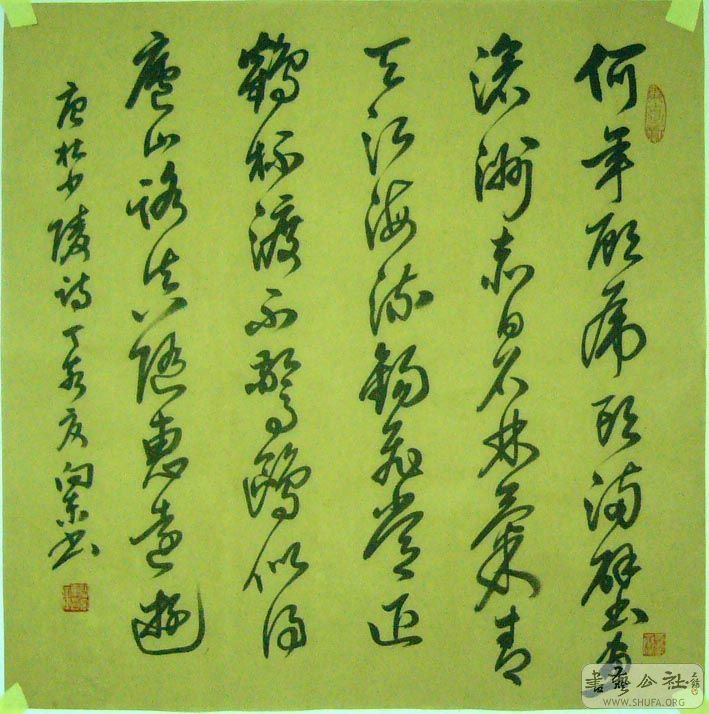 何年顾虎头满壁画
滄洲赤日石林氣青
天江海流錫飛常近
鶴杯渡不驚鷗似得
廬山路真隨惠遠遊
唐杜少陵诗丁亥夏向东书
書藝公社
WWW.SHUFA.ORG